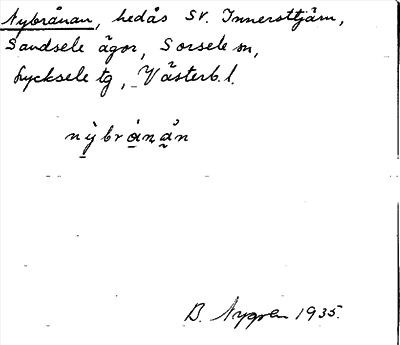 Nybrånan, hedås SV. Innersttjärn,
Sandsele ägor, Sorsele sn,
Lycksele tg, Västerb. l.
nỳbrånån
B. Nygren 1935.